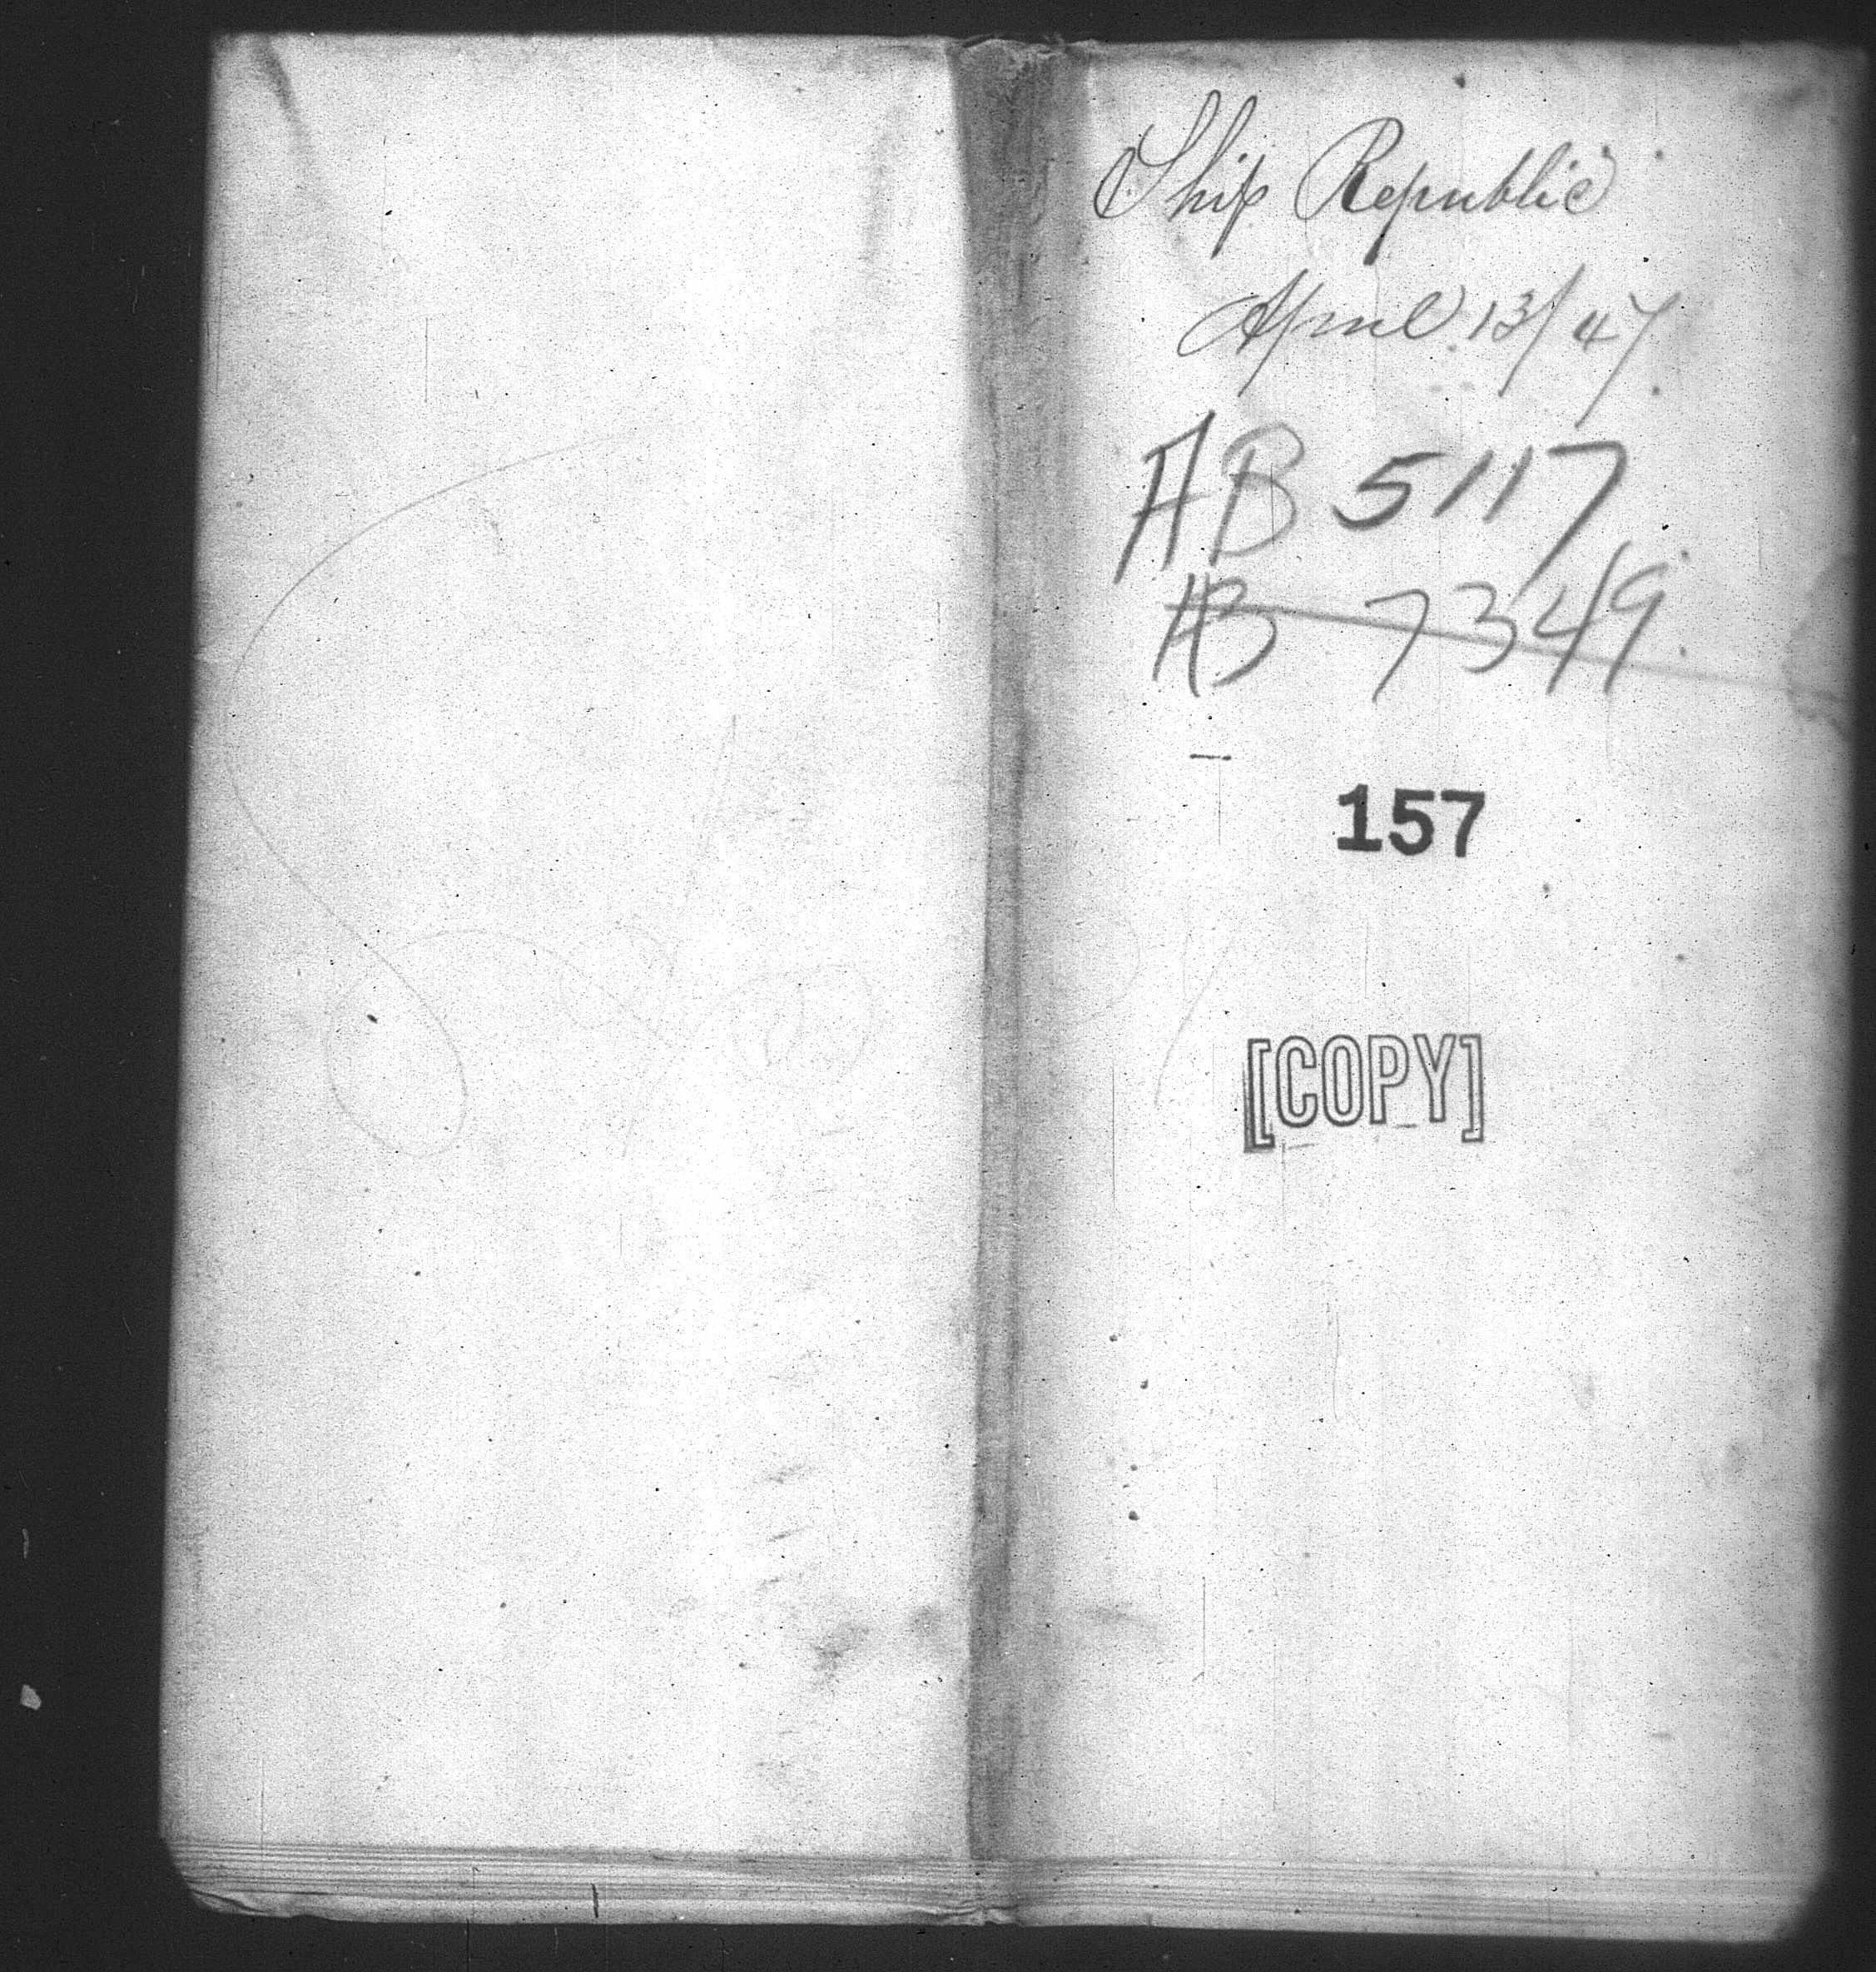 Ship Republic
April 13/47
AB 5117
AB 7349
157
[COPY]